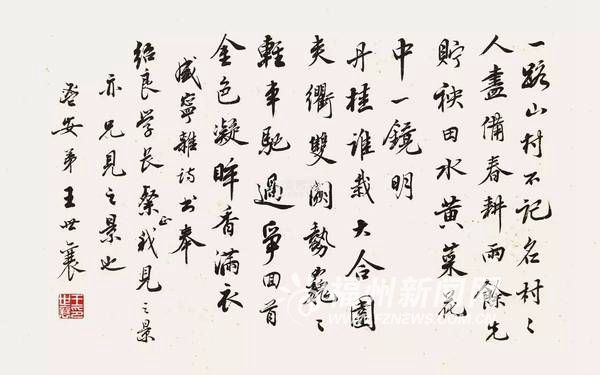 一路山村不記名村〻
人盡備春耕雨餘先
貯秧田水黄菜花
中一鏡明
丹桂誰栽大合圍
夾衢雙闕勢巍〻
輕車馳過爭回首
金色凝眸香滿衣
咸寧雜詩書奉
紹良学長粲正我見之景
亦兄見之景也
安弟王世襄
福州新闻网
FZNEWS.COM.CN